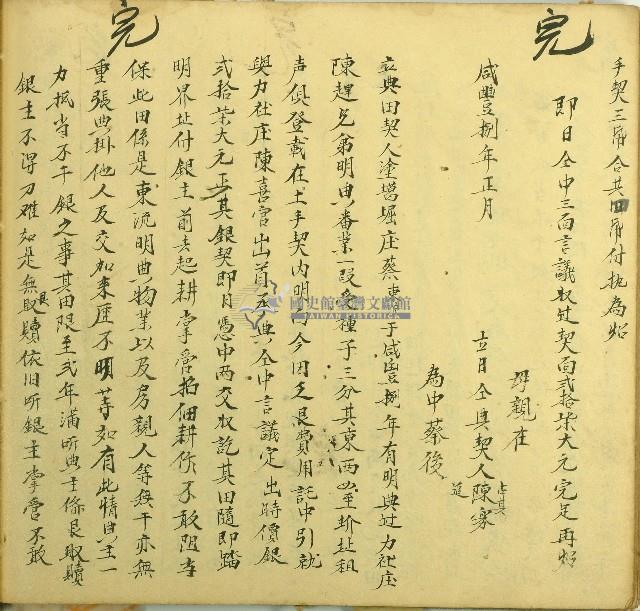 手契三帋合共四帋付执為炤
即日仝中三面言議取过契面弍拾柒大元完足再炤
母親在
咸豐捌年正月 立日仝典契人陳
為中蔡後
完
立典田契人塗塭堀庄蔡 于咸豐捌年有明典过力社庄
陳趕兄弟明典番業一段受種子三分其東西四至界址租
声俱登載在上手契内明白今因乏艮費用託中引就
與力社庄陳喜官出首承典仝中言議定出時價銀
弍拾柒大元正其銀契即日憑中両交收訖其田隨即踏
明界址付銀主前去起耕掌管招佃耕作不敢阻当
保此田係是東流明典物業以及房親人等無干亦無
重張典掛他人及交加来歴不明等如有此情典主一
力抵当不干銀之事其田限至弍年滿听典主俻艮取贖
銀主不得刁难如是無艮取贖依旧听銀主掌管不敢
完
國史館臺灣文獻館
TAIWAN HISTORICA